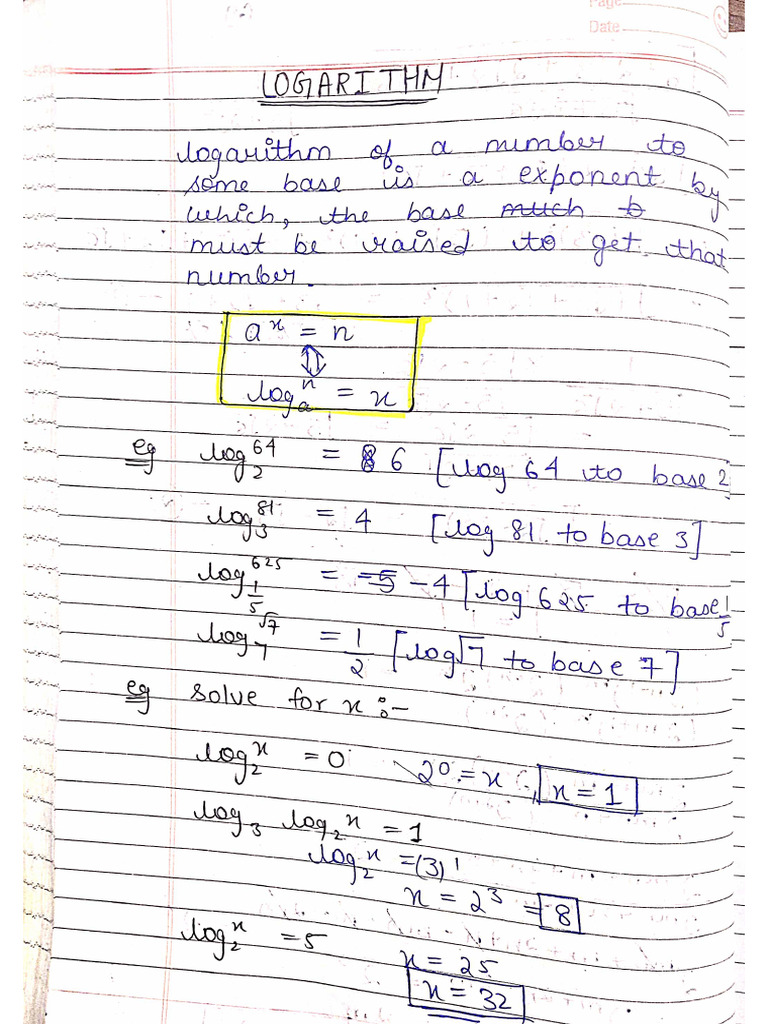 Page
Date
LOGARITHM
logarithm of a number to
some base is a exponent by
which, the base much b
must be raised to get that
number.
aˣ = n
⇕
logₐⁿ = x
eg log₂⁶⁴ = 8 6 [log 64 to base 2
log₃⁸¹ = 4 [log 81 to base 3]
log_{1/5}^{625} = -5 -4 [log 625 to base 1/5
log₇^{√7} = 1/2 [log √7 to base 7]
eg solve for x :-
log₂ˣ = 0 2⁰ = x, x = 1
log₃ log₂ˣ = 1
log₂ˣ = (3)¹
x = 2³ = 8
log₂ˣ = 5 x = 25
x = 32